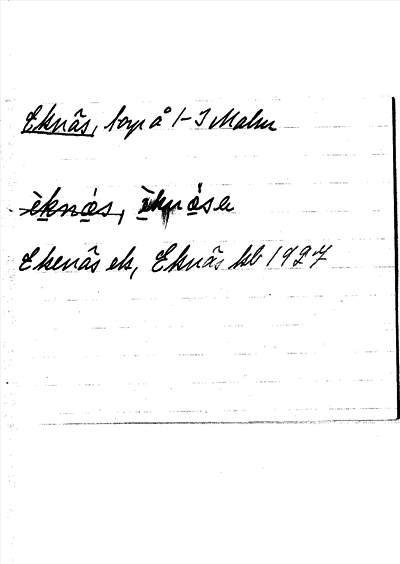 Eknäs, torp å 1-3 Malm
èknás, èknáse
Ekenäs ek, Eknäs kb 1927